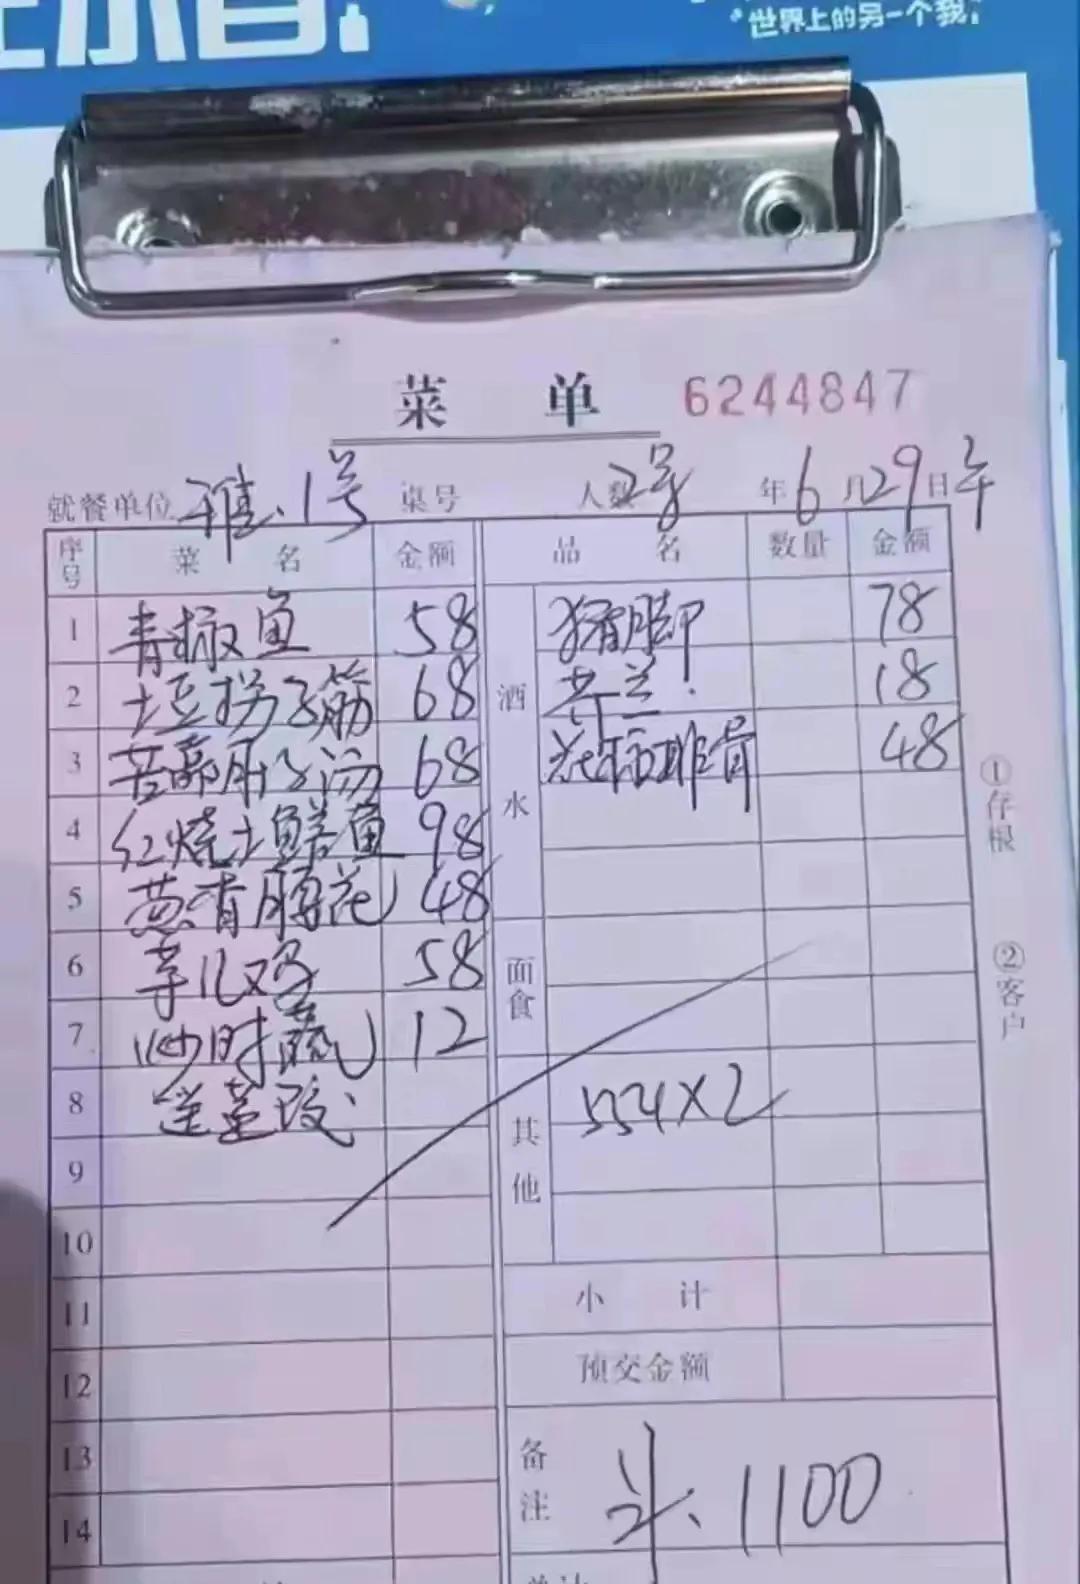 世界上的另一个我.
菜 单 6244847
就餐单位 雅.1号 桌号 人数 2号 年 6 月 29 日 午
序号 菜 名 金额 品 名 数量 金额
1 青椒鱼 58 酒水 猪脚 78
2 土豆拐子筋 68 芥兰 18
3 苦 肚子汤 68 排骨 48
4 红烧土 鱼 98
5 葱 腰花 48
6 芋儿鸡 58 面食
7 炒时蔬 12
8 其他 554×2
9
10
11 小 计
12 预交金额
13 备注 1100
14
①存根
②客户